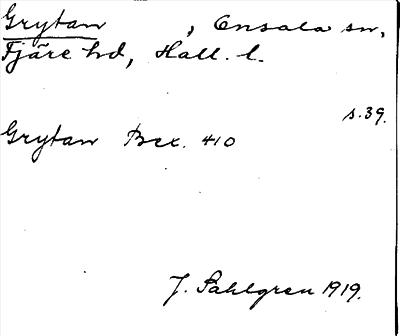 Grytan , Onsala sn,
Fjäre hd, Hall. l.
s. 39.
Grytan Bex. 410
J. Sahlgren 1919.